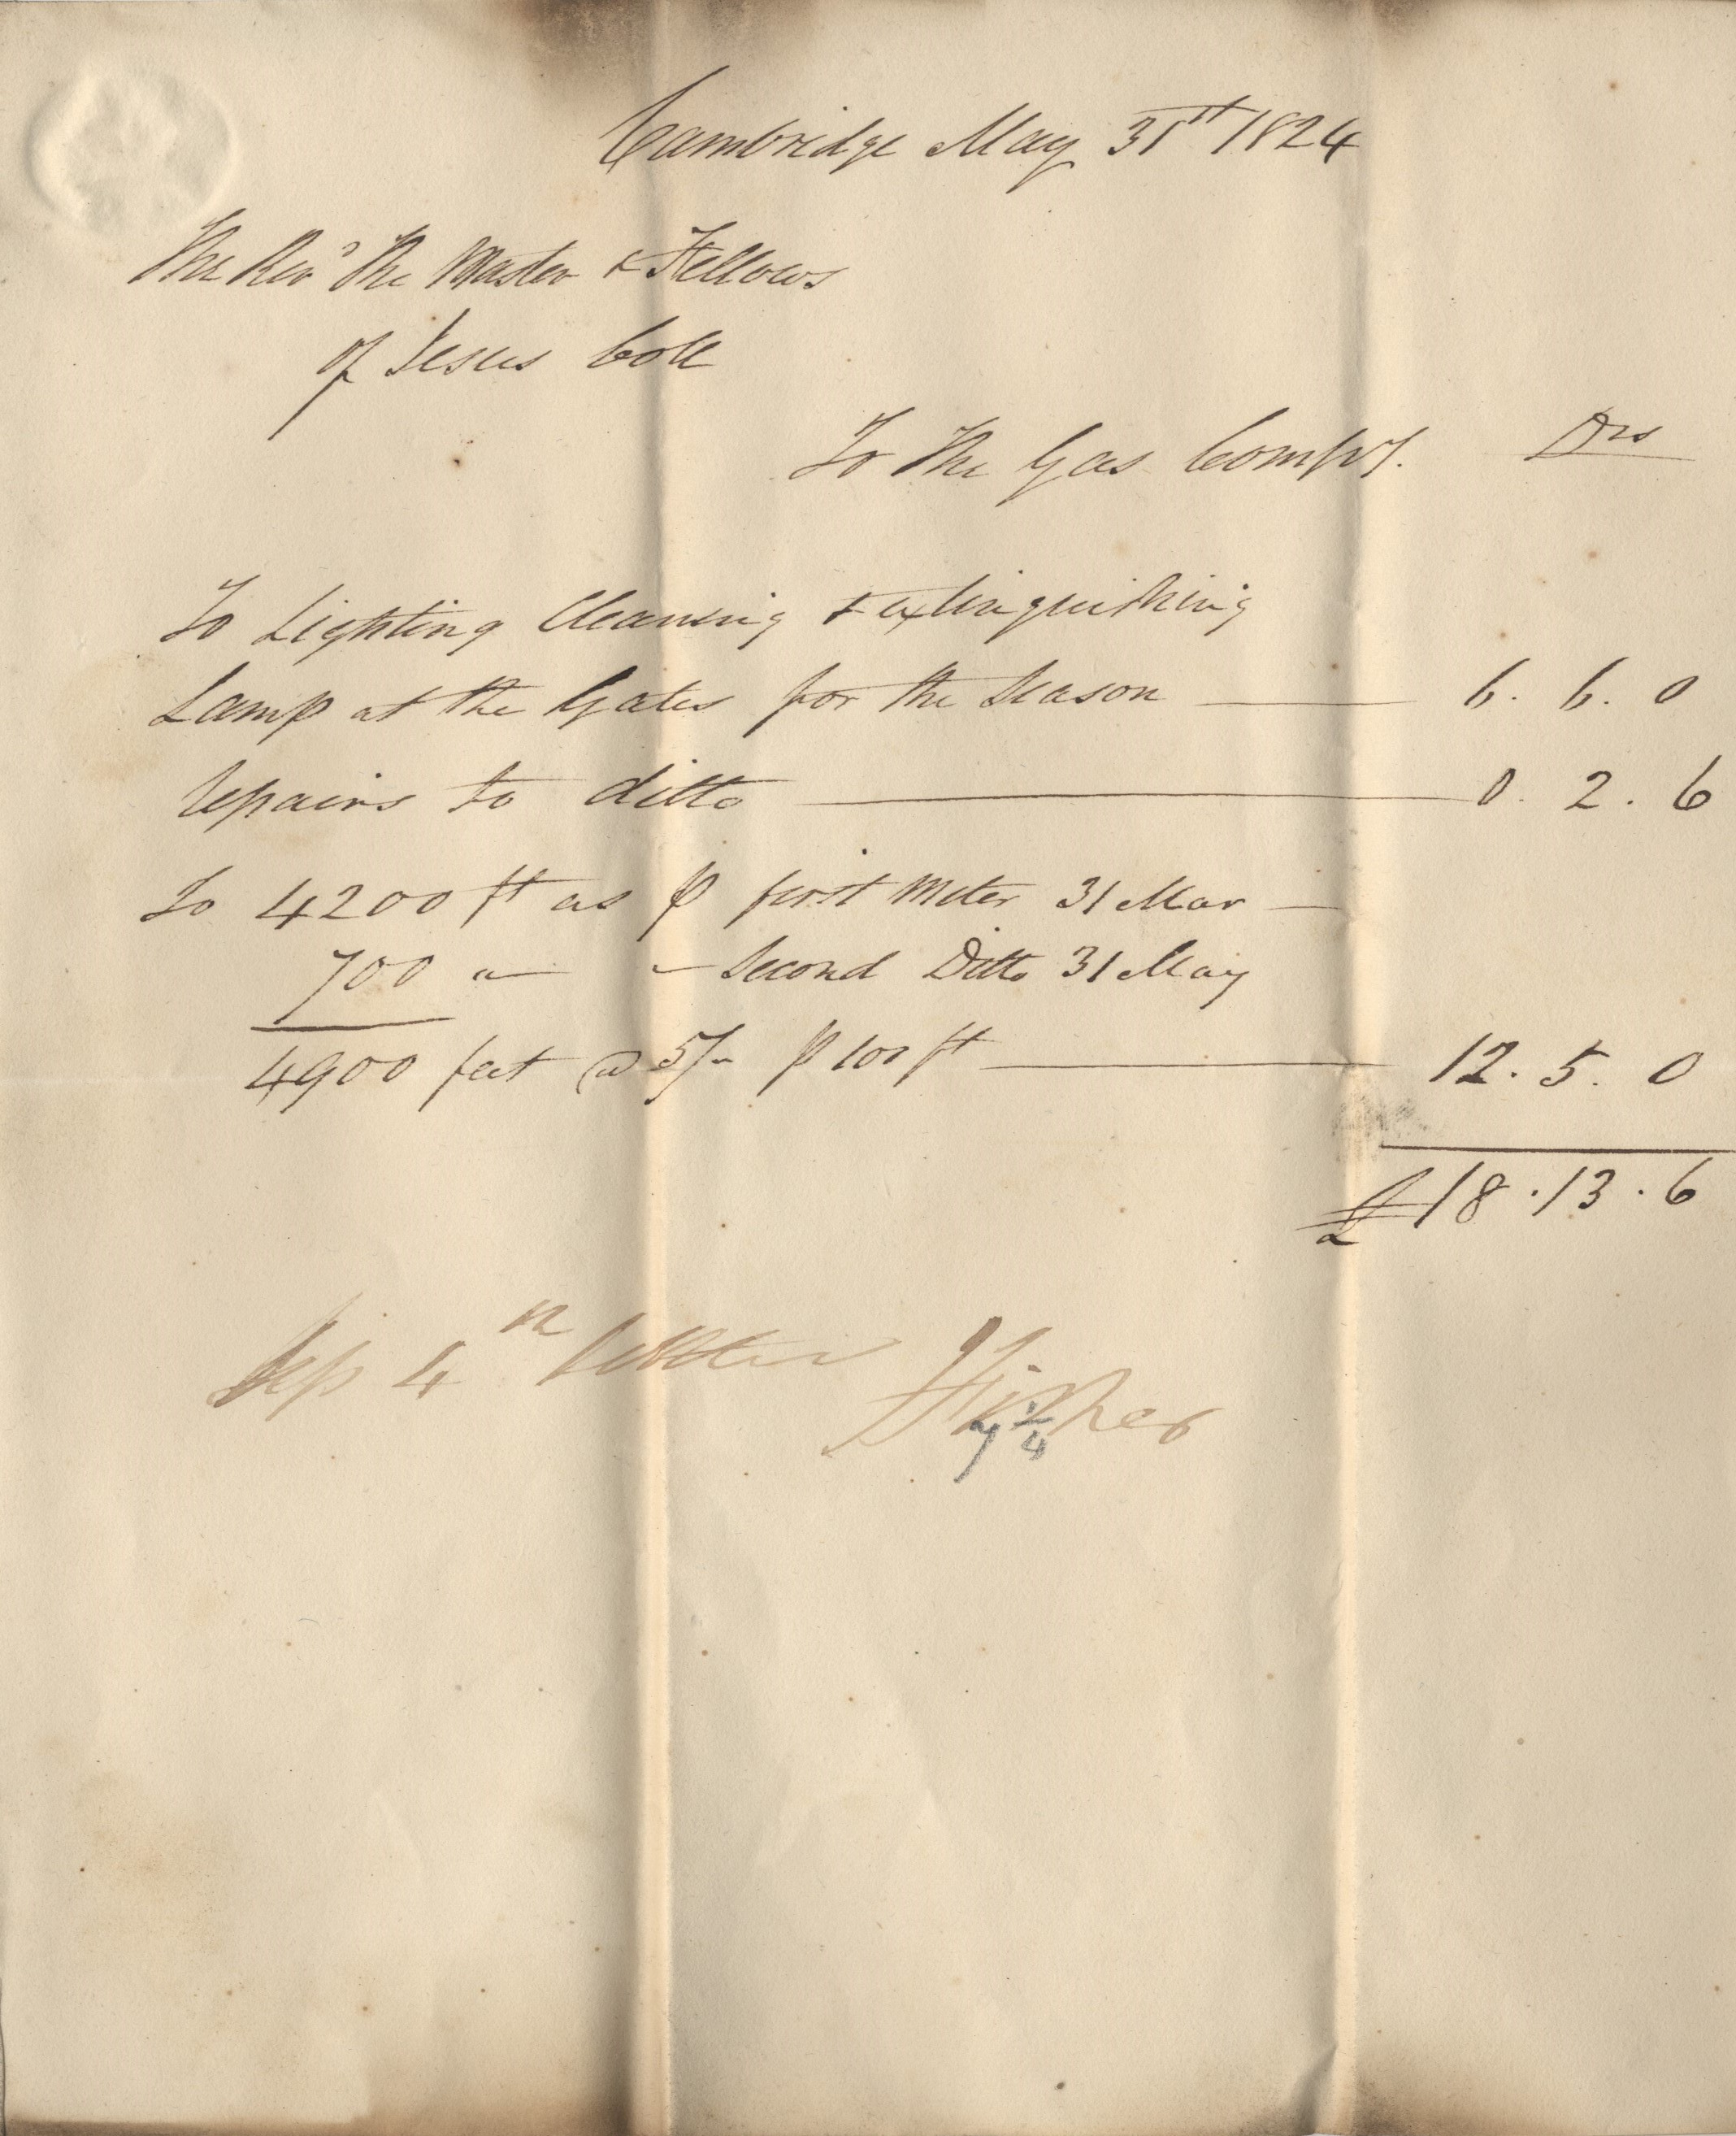 Cambridge May 31st 1824
The Revd The Master & Fellows
of Jesus Coll
To The Gas Compy. Drs
To Lighting Cleansing & extinguishing
Lamp at the Gates for the Season 6. 6. 0
repairs to ditto 0. 2. 6
To 4200 ft as P first Meter 31 Mar
700 " " Second Ditto 31 May
4900 feet @ 5/- P 100 ft 12. 5. 0
£18.13.6
Sep 4th
Fisher
7 1/4